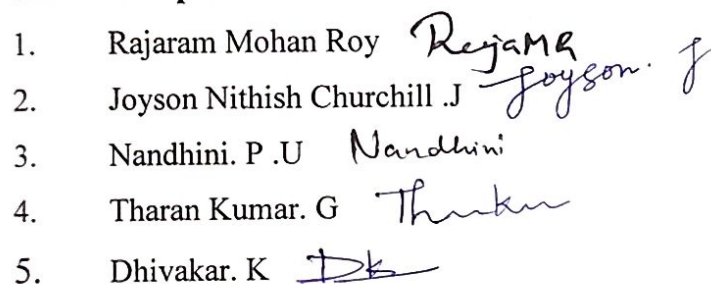 1. Rajaram Mohan Roy RajaMR
2. Joyson Nithish Churchill .J Joyson. J
3. Nandhini. P .U Nandhini
4. Tharan Kumar. G
5. Dhivakar. K Dk